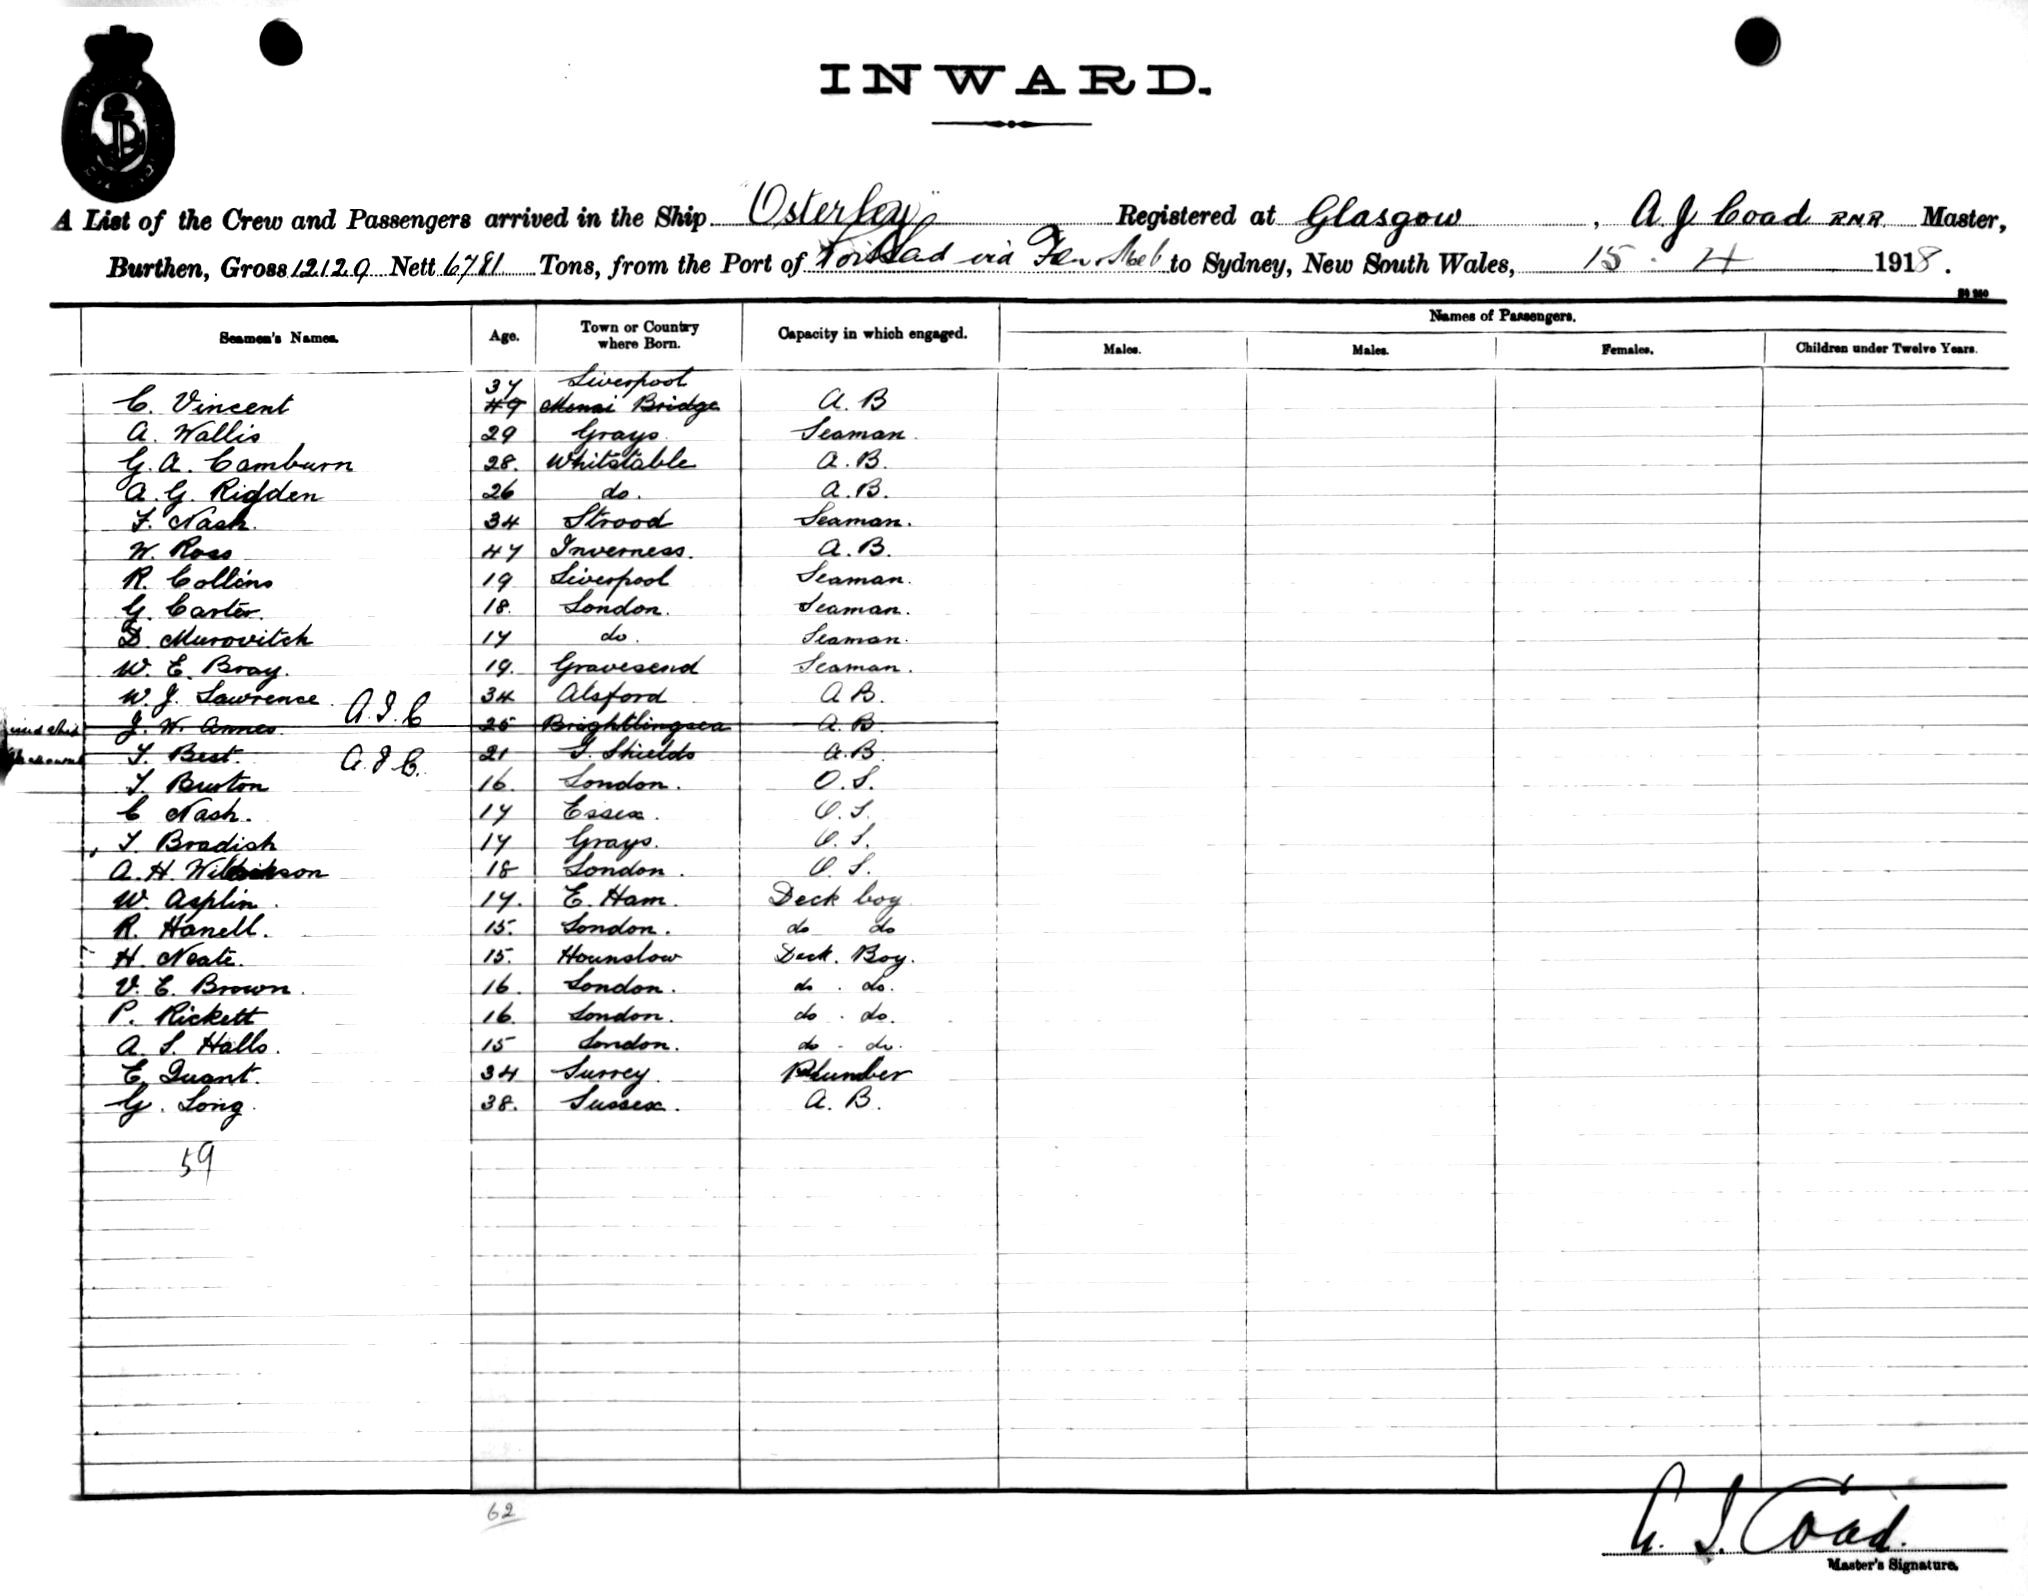 INWARD.
A List of the Crew and Passengers arrived in the Ship "Osterley" Registered at Glasgow, A. J. Coad RNR Master,
Burthen, Gross 12129 Nett 6781 Tons, from the Port of via Fre. Melb to Sydney, New South Wales, 15 . 4 1918.
Names of Passengers.
Seamen's Names. Age. Town or Country where Born. Capacity in which engaged. Males. Males. Females. Children under Twelve Years.
37 Liverpool
C. Vincent 49 Menai Bridge A. B
A. Wallis 29 Grays Seaman.
G. A. Camburn 28. Whitstable A. B.
A. G. Rigden 26 do. A. B.
F. Nash. 34 Strood Seaman.
W. Ross 47 Inverness. A. B.
R. Collins 19 Liverpool Seaman.
G. Carter. 18. London. Seaman.
D. Murovitch 17 do. Seaman.
W. E. Bray. 19. Gravesend Seaman.
W. J. Lawrence 34 Alsford A B.
J. W. Annes A. J. C 25 Brightlingsea A. B.
T. Best. A. J. C. 21 S. Shields A. B.
T. Burton 16. London. O. S.
C Nash. 17 Essex. O. S.
T. Bradish 17 Grays. O. S.
A. H. Wilkinson 18 London. O. S.
W. Asplin. 17. E. Ham. Deck boy
R. Hanell. 15. London. do do
H. Neate. 15. Hounslow Deck. Boy.
V. E. Brown. 16. London. do . do.
P. Rickett 16. London. do . do.
A. S. Halls. 15 London. do - do.
E. Quant. 34 Surrey. Plumber
G. Long. 38. Sussex. A. B.
59
62
A. J. Coad.
Master's Signature.